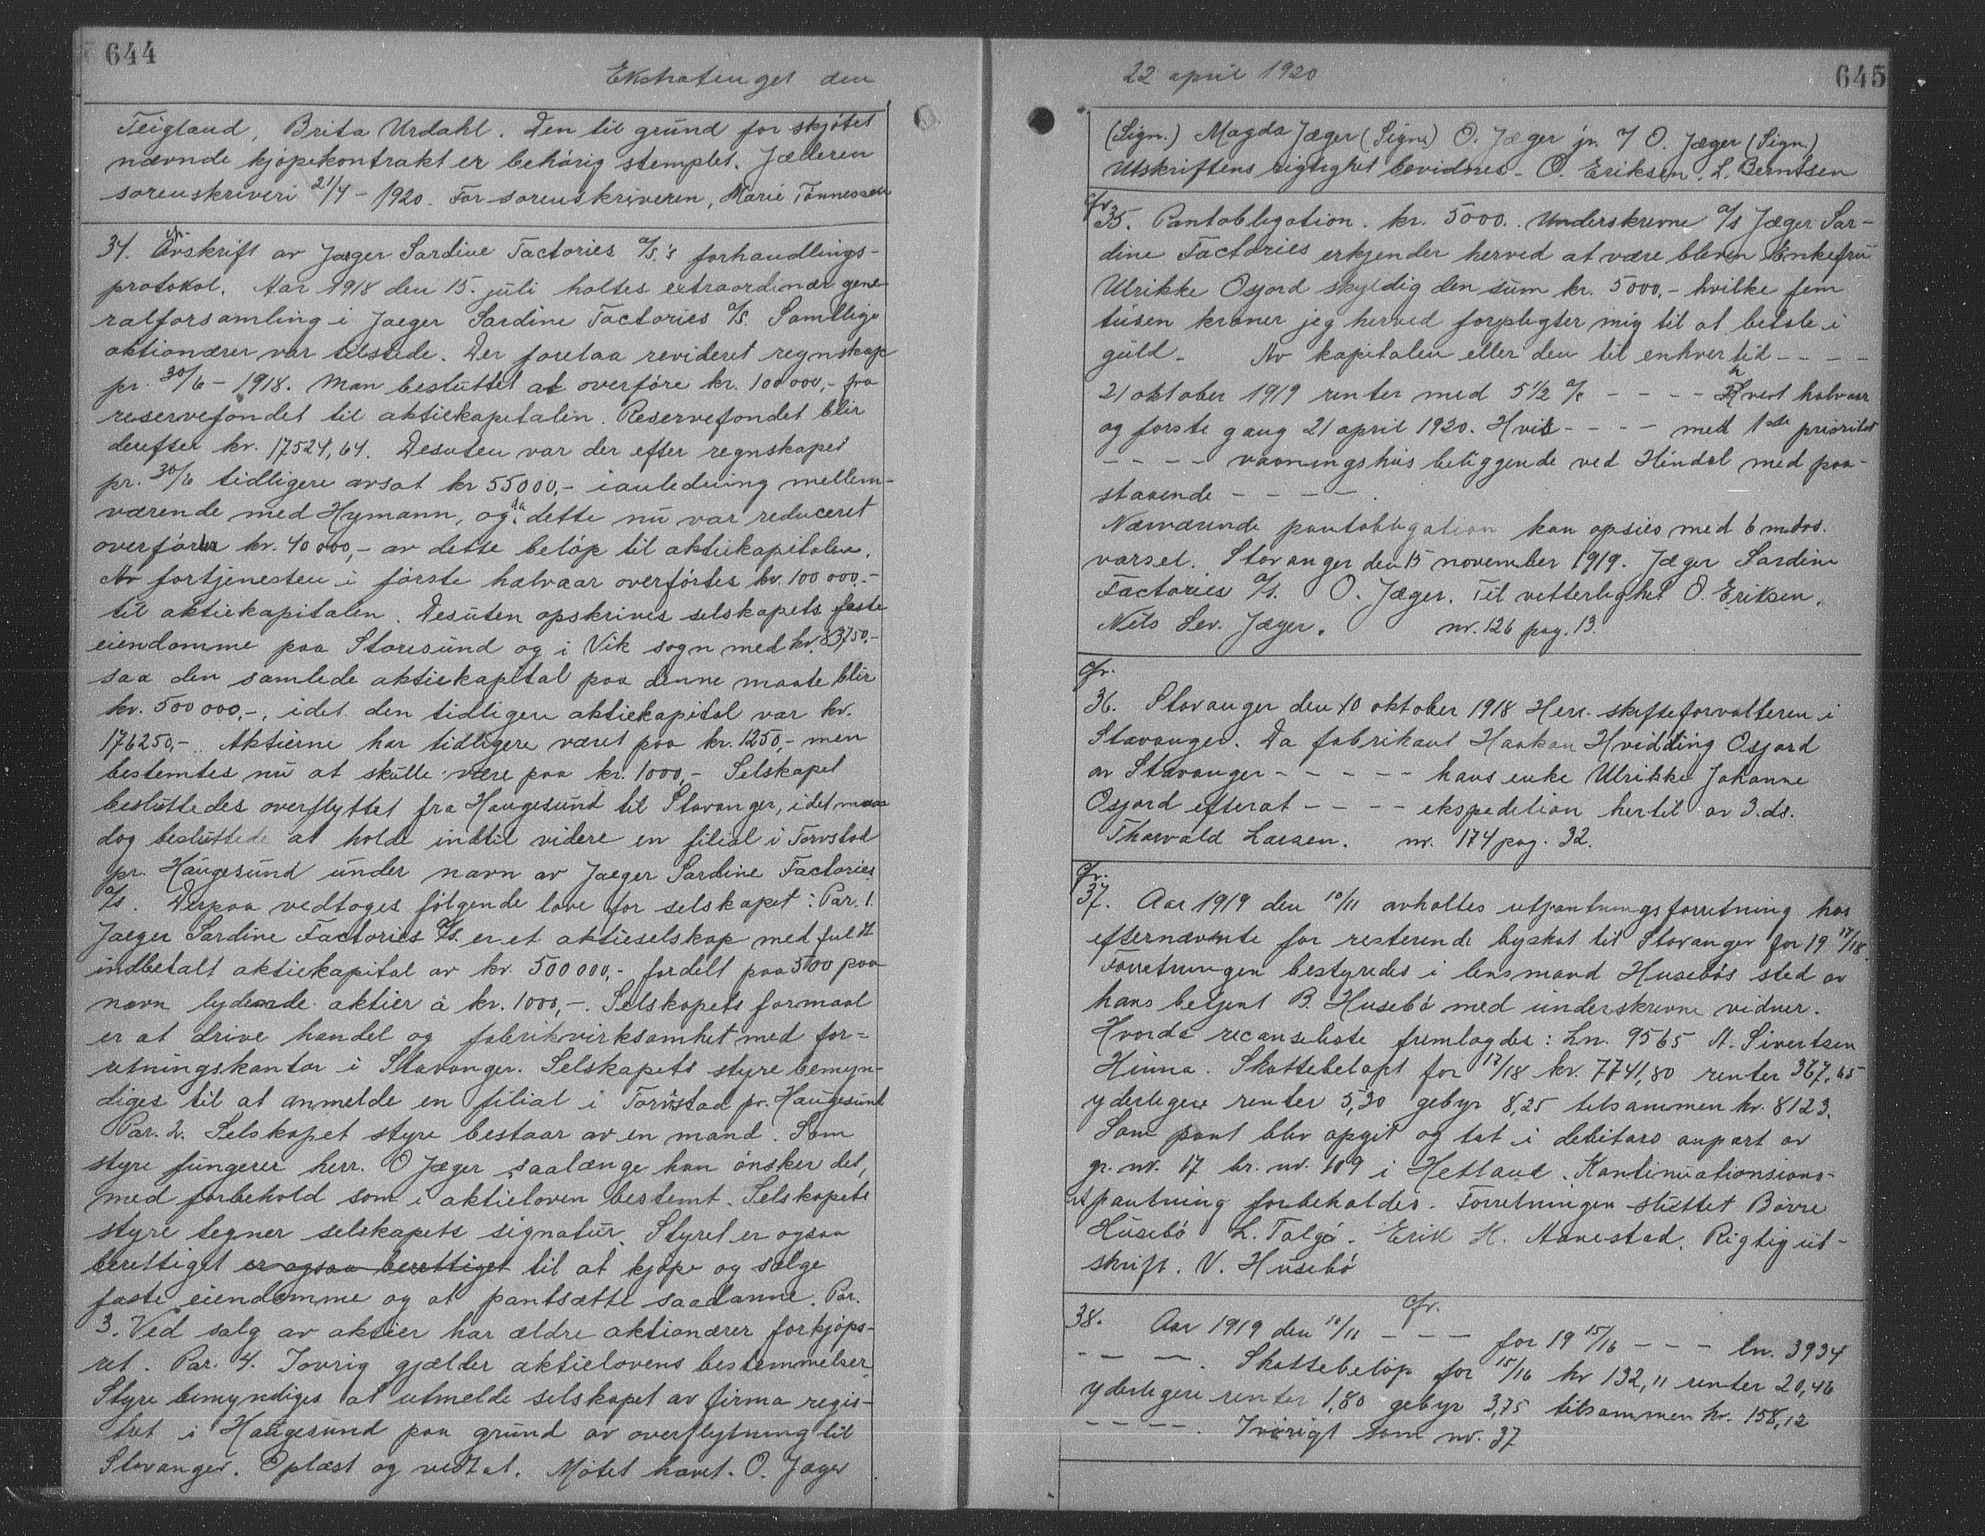 644
Ekstratinget den
Teigland, Brita Urdahl. Den til grund for skjøtet
nævnde kjøpekontrakt er behørig stemplet. Jæderen
sorenskriveri 21/4 - 1920. For sorenskriveren, Marie Tønnessen
34. Avskrift av Jaeger Sardine Factories A/S.'s forhandlings-
protokol. Aar 1918 den 15. juli holtes extraordinær gene-
ralforsamling i Jaeger Sardine Factories A/S. Samtlige
aktionærer var tilstede. Der forelaa revideret regnskap
pr. 30/6 - 1918. Man besluttet at overføre kr. 100000,- fra
reservefondet til aktiekapitalen. Reservefondet blir
derefter kr. 17524,64. Desuten var der efter regnskapet
pr. 30/6 tidligere avsat kr 55000,- i anledning mellem-
værende med Hymann, og da dette nu var reduceret
overføres kr. 40000,- av dette beløp til aktiekapitalen.
Av fortjenesten i første halvaar overførtes kr. 100000.-
til aktiekapitalen. Desuten opskrives selskapets faste
eiendomme paa Storesund og i Vik sogn med kr. 83750.-
saa den samlede aktiekapital paa denne maate blir
kr. 500000,-, idet den tidligere aktiekapital var kr.
176250,-. Aktierne har tidligere været paa kr. 1250,- men
bestemtes nu at skulle være paa kr. 1000,- Selskapet
besluttedes overflyttet fra Haugesund til Stavanger, idet man
dog besluttede at holde indtil videre en filial i Torvstad
pr. Haugesund under navn av Jaeger Sardine Factories
A/S. Derpaa vedtoges følgende love for selskapet: Par. 1.
Jaeger Sardine Factories A/S. er et aktieselskap med fuldt
indbetalt aktiekapital av kr 500000,- fordelt paa 500 paa
navn lydende aktier à kr. 1000,-. Selskapets formaal
er at drive handel og fabrikvirksomhet med for-
retningskontor i Stavanger. Selskapets styre bemyn-
diges til at anmelde en filial i Torvstad pr. Haugesund
Par. 2. Selskapet styre bestaar av en mand. Som
styre fungerer herr. O Jæger saalænge han ønsker det,
med forbehold som i aktieloven bestemt. Selskapets
styre tegner selskapets signatur. Styret er ogsaa
berettiget er ogsaa berettiget til at kjøpe og sælge
faste eiendomme og at pantsætte saadanne. Par.
3. Ved salg av aktier har ældre aktionærer forkjøps-
ret. Par. 4. Iøvrig gjælder aktielovens bestemmelser
Styre bemyndiges at utmelde selskapet av firma regis-
tret i Haugesund paa grund av overflytning til
Stavanger. Oplæst og vedtat. Møtet hævet. O. Jæger
22 april 1920
645
(Sign.) Magda Jæger (Sign.) O. Jæger jr. O. Jæger (Sign.)
Utskriftens rigtighet bevidnes. O. Eriksen. L. Berntsen
35. Pantobligation. kr. 5000. Underskrevne A/S Jæger Sar-
dine Factories erkjender herved at være bleven Enkefru
Ulrikke Osjord skyldig den sum kr. 5000,- hvilke fem
tusen kroner jeg herved forpligter mig til at betale i
guld - Av kapitalen eller den til enhver tid - - - -
21 oktober 1919 renter med 5 1/2 % - - - - Hvert halvaar
og første gang 21 april 1920. Hvis - - - - med 1ste prioritet
- - - - vaaningshus beliggende ved Hindal med paa-
staaende - - - - .
Nærværende pantobligation kan opsies med 6 mdrs.
varsel. Stavanger den 15 november 1919. Jæger Sardine
Factories A/S. O. Jæger. Til vitterlighet O. Eriksen.
Nils Sev. Jæger. nr. 126 pag. 13.
36. Stavanger den 10 oktober 1918 Herr. skifteforvalteren i
Stavanger. Da fabrikant Haakon Hvidding Osjord
av Stavanger - - - - - hans enke Ulrikke Johanne
Osjord efterat - - - - ekspedition hertil av 3. ds.
Thorvald Larsen. nr. 174 pag. 32.
37. Aar 1919 den 10/11 avholtes utpantningsforretning hos
efternævnte for resterende byskat til Stavanger for 19 17/18.
Forretningen bestyredes i lensmand Husebøs sted av
hans betjent B. Husebø med underskrevne vidner.
Hvorda restanseliste fremlagdes: Ln. 9565 A. Sivertsen
Hinna. Skattebeløpt for 17/18 kr. 7741,80 renter 367,65
yderligere renter 5,30 gebyr 8,25 tilsammen kr. 8123.
Som pant blev opgit og tat i debitors anpart av
gr. nr. 17 br. nr. 109 i Hetland. Kontinuationsions-
utpantning forbeholdes. Forretningen sluttet Børre
Husebø L. Talgø. Erik H. Aavestad. Rigtig ut-
skrift. V. Husebø
38. Aar 1919 den 10/11 - - - for 19 15/16 - - - ln. 3934
- - - . Skattebeløp for 15/16 kr 132,11 renter 20,46
yderligere renter 1,80 gebyr 3,75 tilsammen kr. 158,12
- - - - . Iøvrigt som nr. 37